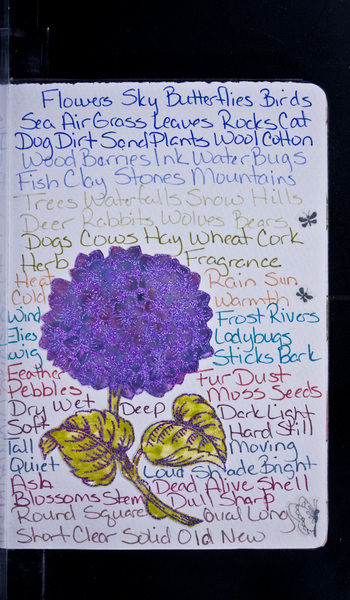 Flowers Sky Butterflies Birds
Sea Air Grass Leaves Rocks Cat
Dog Dirt Sand Plants Wool Cotton
Wood Barries Ink Water Bugs
Fish Clay Stones Mountains
Trees Waterfalls Snow Hills
Deer Rabbits Wolves Bears
Dogs Cows Hay Wheat Cork
Herb Fragrance
Heat Rain Sun
Cold Warmth
Wind Frost Rivers
Flies Ladybugs
Twig Sticks Bark
Feather Fur Dust
Pebbles Moss Seeds
Dry Wet Deep Dark Light
Soft Hard Still
Tall Moving
Quiet Loud Shade Bright
Ash Dead Alive Shell
Blossoms Stem Dull Sharp
Round Square Oval Long
Short Clear Solid Old New